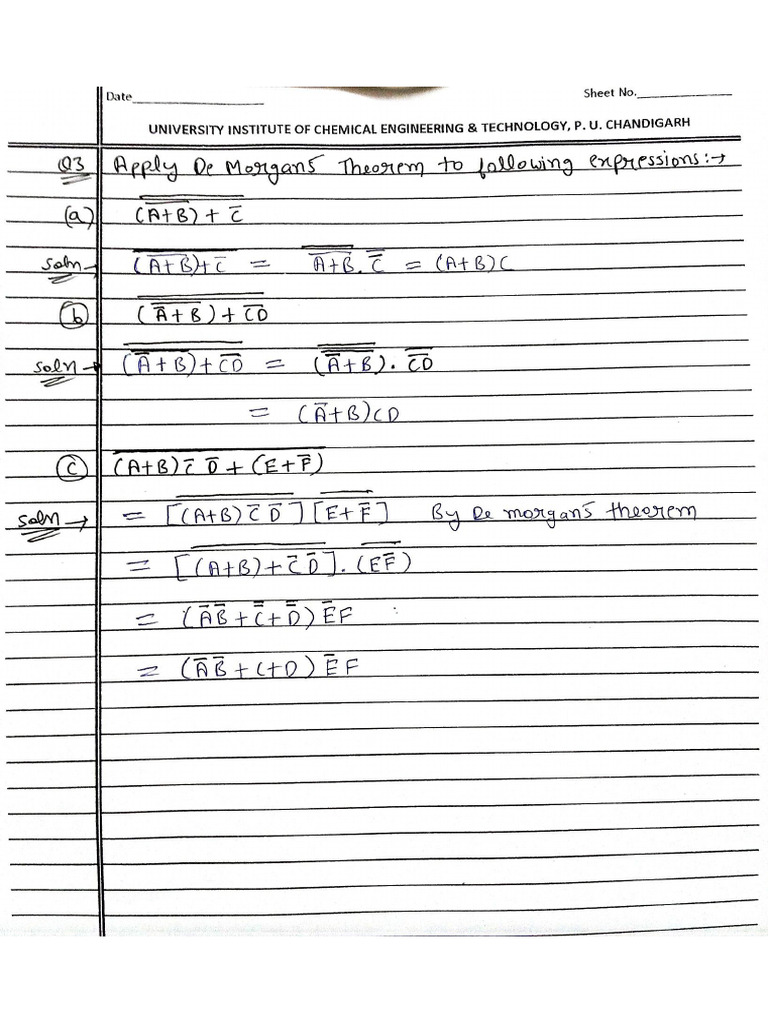 Date____________ Sheet No.____________
UNIVERSITY INSTITUTE OF CHEMICAL ENGINEERING & TECHNOLOGY, P. U. CHANDIGARH
Q3 Apply De Morgan's Theorem to following expressions:→
(a) $\overline{\overline{(A+B)}+\overline{C}}$
Soln→ $\overline{\overline{(A+B)}+\overline{C}} = \overline{\overline{A+B}}.\overline{\overline{C}} = (A+B)C$
(b) $\overline{\overline{(\overline{A}+B)}+\overline{CD}}$
Soln→ $\overline{\overline{(\overline{A}+B)}+\overline{CD}} = \overline{\overline{(\overline{A}+B)}}.\overline{\overline{CD}}$
$= (\overline{A}+B)CD$
(c) $\overline{(A+B)\overline{C}\,\overline{D}+(E+\overline{F})}$
Soln→ $= [\overline{(A+B)\overline{C}\,\overline{D}}][\overline{E+\overline{F}}]$ By De morgan's theorem
$= [\overline{(A+B)+\overline{C}\,\overline{D}}].(\overline{E\overline{F}})$
$= (\overline{A}\,\overline{B}+\overline{\overline{C}}+\overline{\overline{D}})\overline{E}F$
$= (\overline{A}\,\overline{B}+C+D)\overline{E}F$